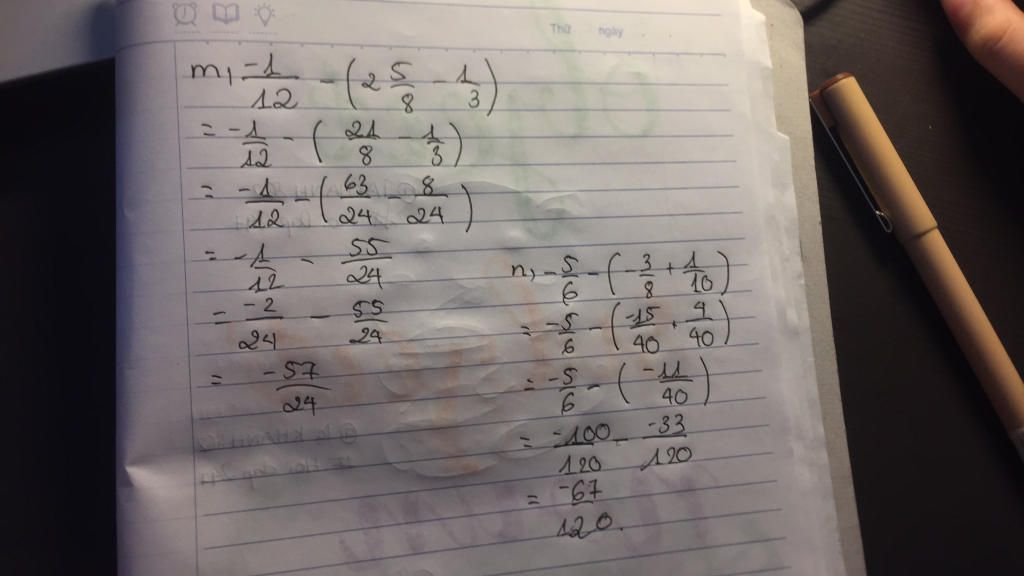 Thứ ngày
m, -1/12 - (2 5/8 - 1/3)
= -1/12 - (21/8 - 1/3)
= -1/12 - (63/24 - 8/24)
= -1/12 - 55/24
= -2/24 - 55/24
= -57/24
n, -5/6 - (-3/8 + 1/10)
= -5/6 - (-15/40 + 4/40)
= -5/6 - (-11/40)
= -100/120 - -33/120
= -67/120.